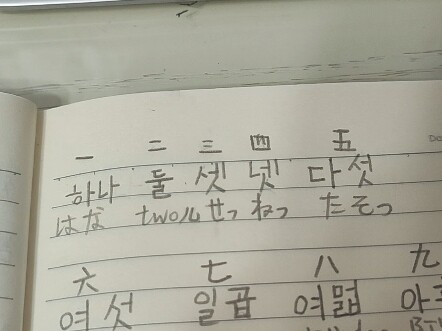 一 二 三 四 五
하나 둘 셋 넷 다섯
はな twoル せっ ねっ たそっ
六 七 八 九
여섯 일곱 여덟